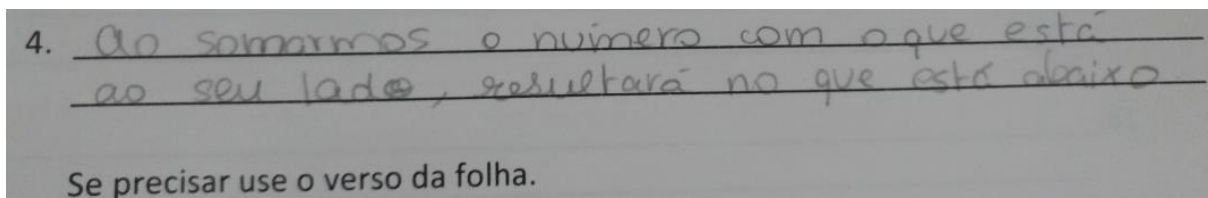 4. ao somarmos o número com o que está
ao seu lado, resultará no que está abaixo
Se precisar use o verso da folha.